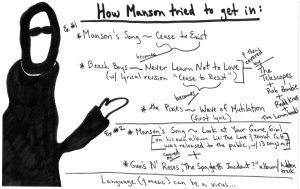 How Manson tried to get in:
Ex. #1
* Manson's Song ~ Cease to Exist
becomes
* Beach Boys ~ Never Learn Not to Love
(w/ lyrical revision "Cease to Resist")
becomes
* the Pixies ~ Wave of Mutilation
(first lyric)
* then covered by
The Telescopes
Rob Zombie
Redd Kross
The Lemonheads
Ex #2
* Manson's Song ~ Look at Your Game, Girl
on his own album Lie: The Love & Terror Cult
was released to the public, 13 songs
covered
* Guns N' Roses, "The Spaghetti Incident?" album / hidden track
Language (& music) can be a virus...